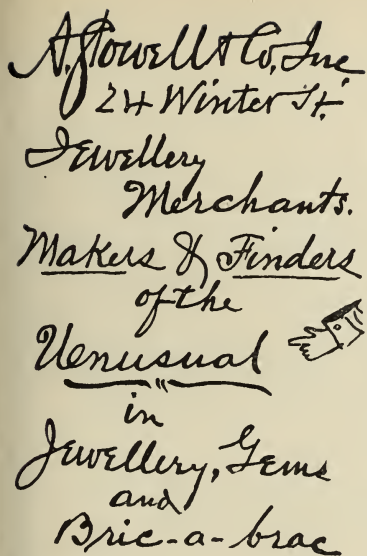 A. Stowell & Co, Inc
24 Winter St.
Jewellery
Merchants.
Makers & Finders
of the
Unusual
in
Jewellery, Gems
and
Bric-a-brac